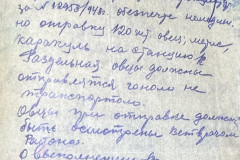 за № 12458/148г. обеспечьте немедлен-
но отправку 120 шт. овец, мериc,
каракуль на станцию
Раздельная овцы должны
отправлятся гоном не
транспортом.
Овцы при отправке должны
быть осмотрены Ветврачом
Района.
О выполнении